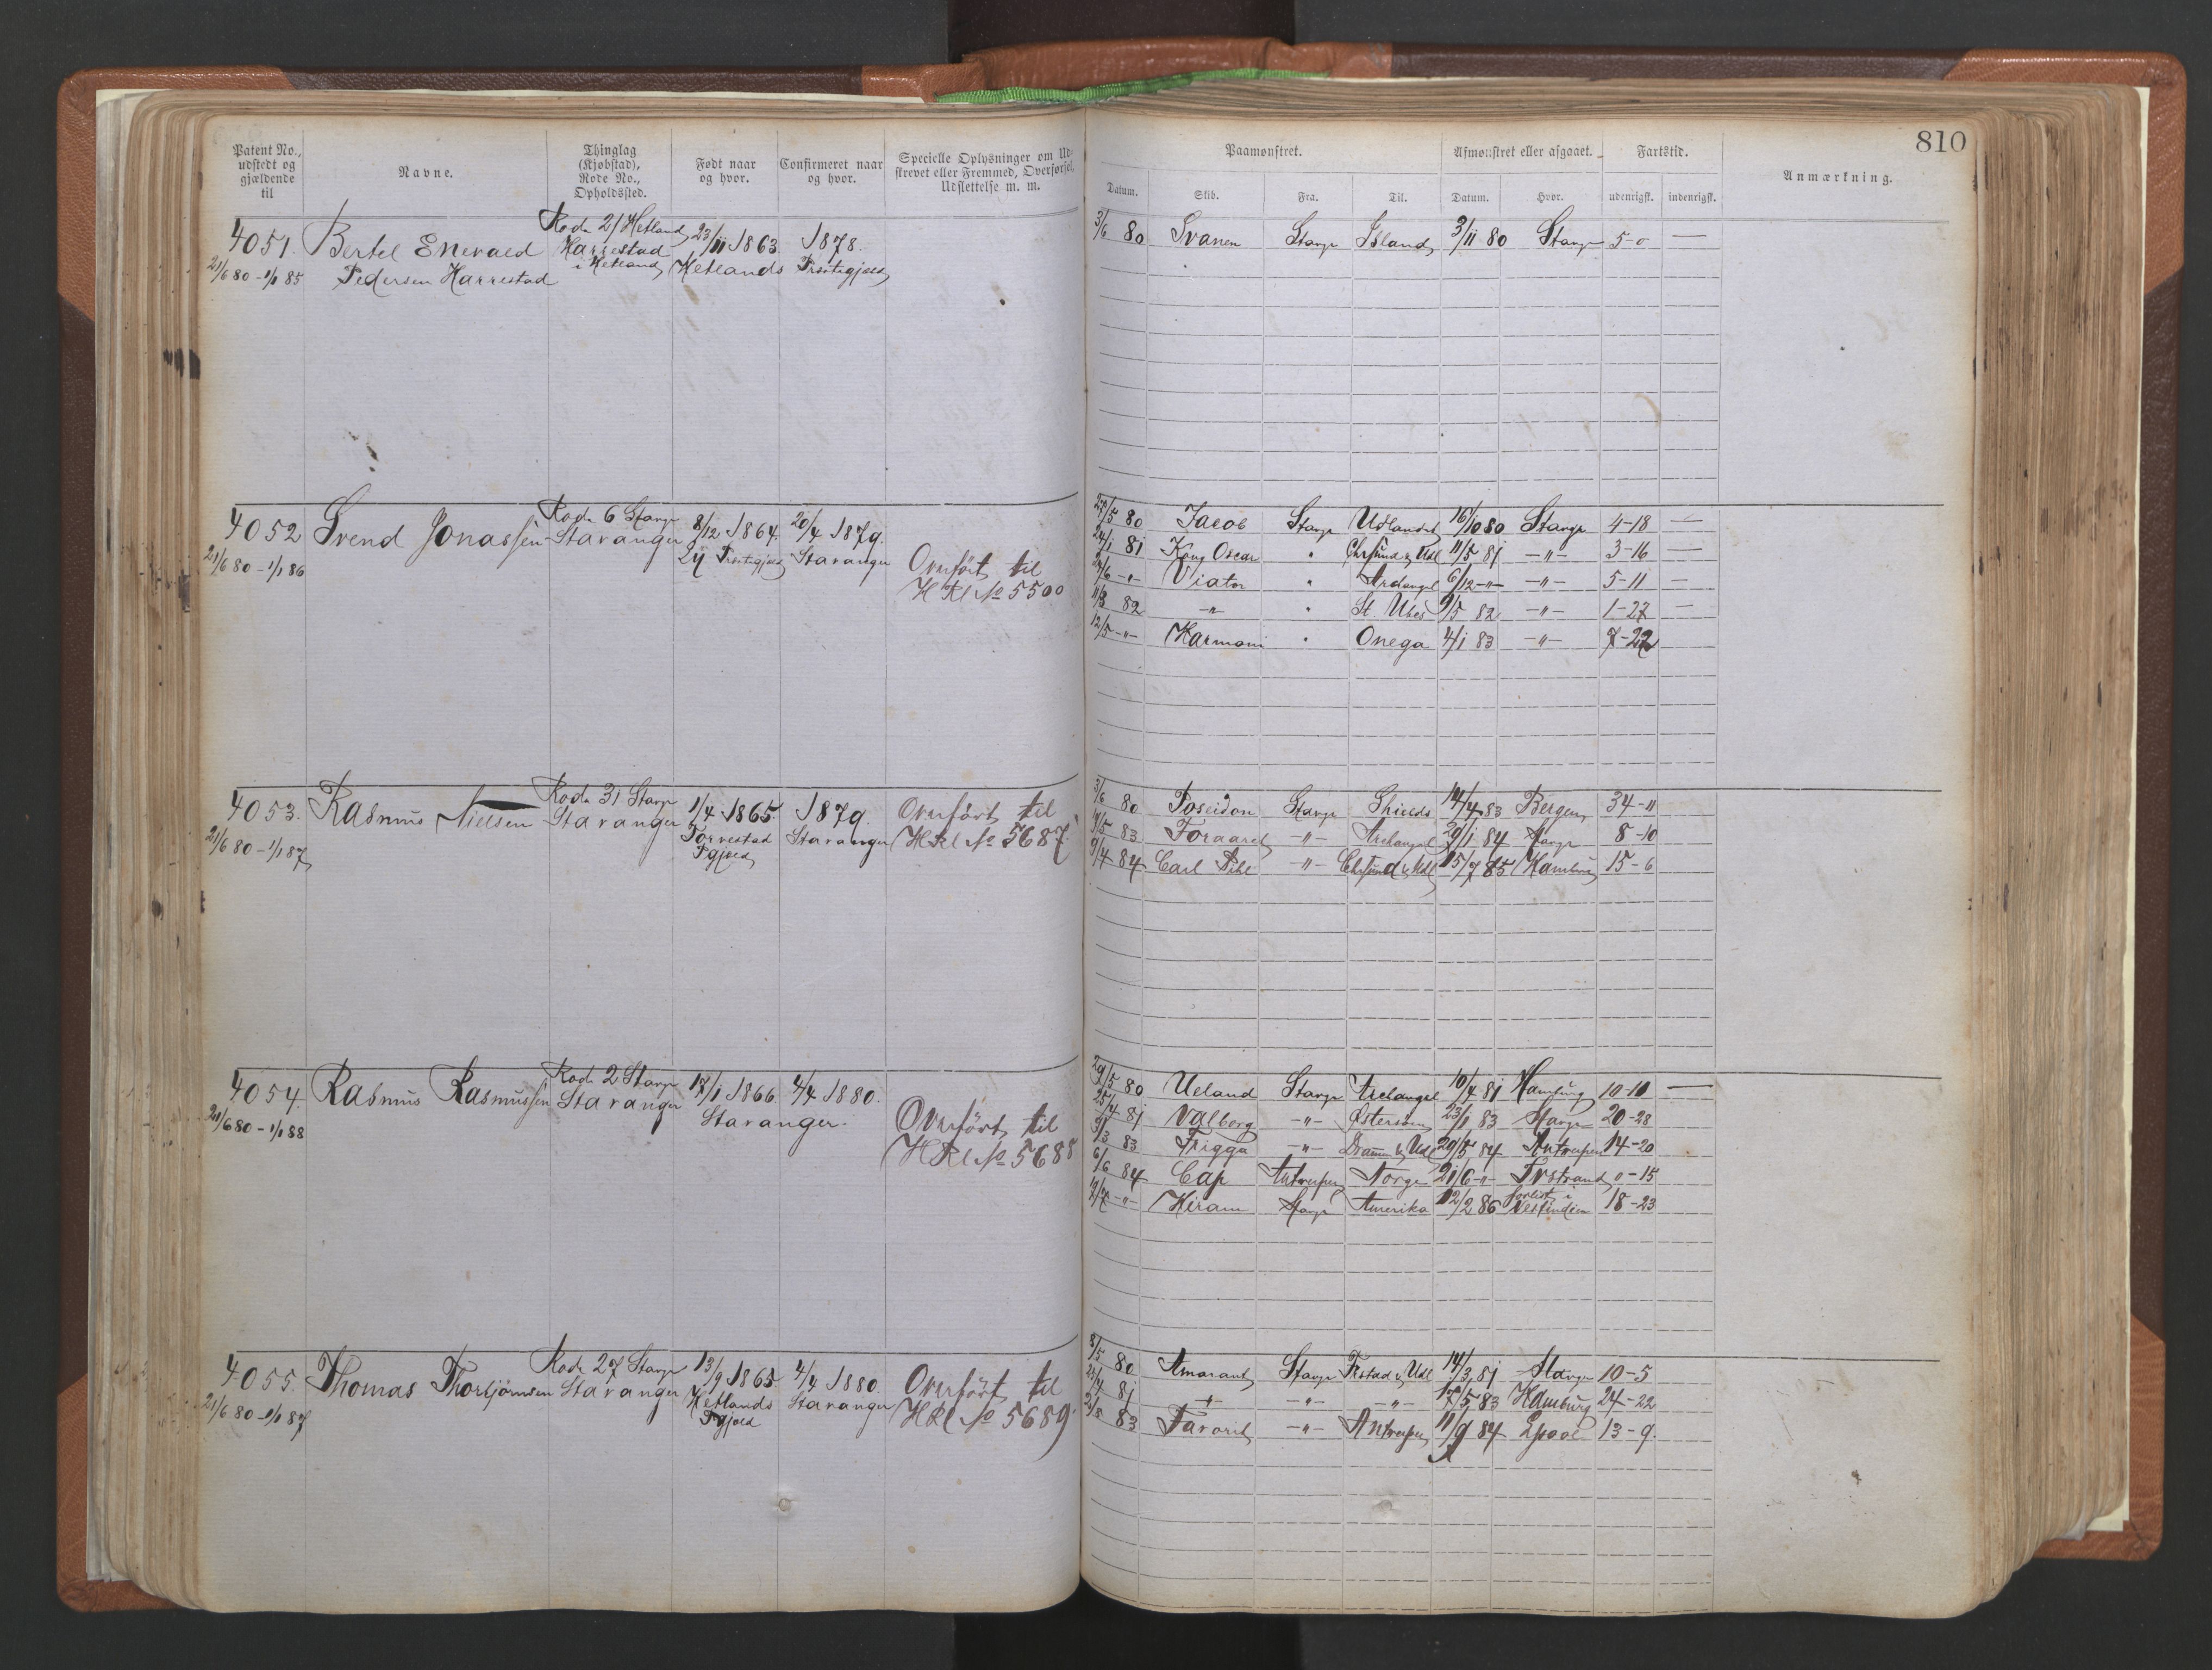 810
Patent No., udstedt og gjældende til
Navne.
Thinglag (Kjøbstad), Rode No., Opholdssted.
Født naar og hvor.
Confirmeret naar og hvor.
Specielle Oplysninger om Udstrevet eller Fremmed, Overførsel, Udslettelse m. m.
Paamønstret.
Afmønstret eller afgaaet.
Fartstid.
Anmærkning.
Datum. Skib. Fra. Til. Datum. Hvor. udenrigst. indenrigst.
4051. Bertel Enevald Rode 21 Hetland 23/11 1863. 1878.
21/6 80 - 1/1 85 Pedersen Harrestad Harrestad i Hetland Hetlands Præstegjæld
3/6 80 Svanen Stavgr Island 3/11 80 Stavgr 5-0 —
4052 Svend Jonassen Rode 6 Stavgr Stavanger 8/12 1864. 20/4 1879.
21/6 80 - 1/1 86 Præstegjæld Stavanger
Overført til
H Rl No 5500
22/5 80 Jacob Stavgr Udlandet 16/10 80 Stavgr 4-18 —
24/1 81 Kong Oscar " Chrsund & Udl 11/5 81 -"- 3-16 —
24/6 -"- Viator " Archangel 6/12 -"- -"- 5-11 —
11/3 82 -"- " St Ubes 9/5 82 -"- 1-27 —
12/5 -"- Harmoni " Onega 4/1 83 -"- 7-22
4053. Rasmus Nielsen Rode 31 Stavgr Stavanger 1/4 1865. 1879.
21/6 80 - 1/1 87 Torvestad Pgjæld Stavanger
Overført til
H Rl No 5687
3/6 80 Poseidon Stavgr Shields 14/4 83 Bergen 34-11
19/5 83 Foraaret -"- Archangel 29/1 84 Stavgr 8-10
9/4 84 Carl Pihl -"- Chrsund & Udl 15/7 85 Hamburg 15-6
4054. Rasmus Rasmussen Rode 2 Stavgr Stavanger 17/1 1866 4/4 1880.
21/6 80 - 1/1 88 Stavanger.
Overført til
H Rl No 5688
29/5 80 Ueland Stavgr Archangel 10/4 81 Hamburg 10-10 —
25/4 81 Valberg -"- Østersøen 23/1 83 Stavgr 20-28
3/3 83 Frigga -"- Dramm & Udl 29/5 84 Antwerpen 14-20
6/6 84 Cap Antwerpen Norge 21/6 -"- "-15
-"- Hiram Stavgr Amerika 12/2 86 forlist i Vestindien 18-23
4055. Thomas Thorbjørnsen Rode 27 Stavgr Stavanger 13/9 1865 4/4 1880.
21/6 80 - 1/1 87 Hetlands Pgjæld Stavanger
Overført til
H Rl No 5689.
8/5 80 Amarant Stavgr Frstad & Udl 14/3 81 Stavgr 10-5
81 -"- -"- -"- 17/5 83 Hamburg 24-22
83 Favorit -"- Antwerpen 11/9 84 Lpool 13-9.